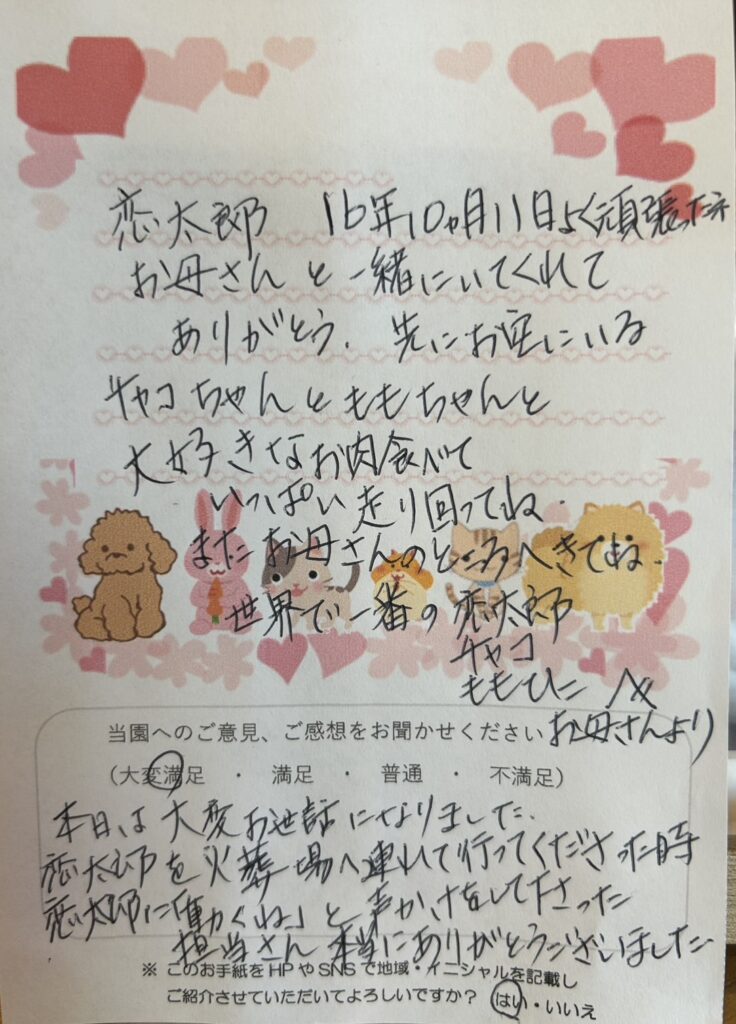 恋太郎 16年10ヵ月11日よく頑張ったネ
お母さんと一緒にいてくれて
ありがとう. 先にお空にいる
チャコちゃんとももちゃんと
大好きなお肉食べて
いっぱい走り回ってね.
またお母さんのところへきてね.
世界で一番の恋太郎
チャコ
ももひこ へ
お母さんより
当園へのご意見、ご感想をお聞かせください
(大変満足 ・ 満足 ・ 普通 ・ 不満足)
本日は大変お世話になりました.
恋太郎を火葬場へ連れて行ってくださった時
恋太郎に「動くね」と声かけをして下さった
担当さん本当にありがとうございました.
※ このお手紙をHPやSNSで地域・イニシャルを記載し
ご紹介させていただいてよろしいですか? はい・いいえ